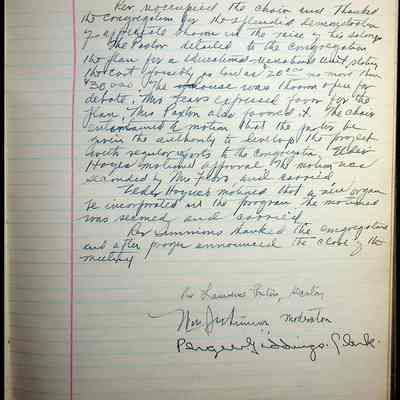 Rev. occupied the chair and thanked
the congregation for the splendid demonstration
of appreciate shown in the raise of his salary.
The Pastor detailed to the congregation
the plan for a educational unit, stating
the cost possibly as low as 20 000 no more than
$30,000. The house was thrown open for
debate. Mrs Fears expressed favor for the
plan, Mrs Paxton also favored it. The chair
entertained a motion that the pastor be
given the authority to develop the project
with regular reports to the congregation. Elder
Hogues motioned approval. The motion was
seconded by Mrs Fears and carried
Elder Hogues motioned that a new organ
be incorporated in the program. The motioned
was seconed and carried
Rev Simmons thanked the congregation
and after prayer announced the close of the
meeting
Rev Lawrence Pastor
Moderator
Giddings. Clerk.